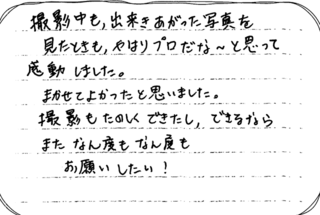 撮影中も,出来きあがった写真を
見たときも,やはりプロだな～と思って
感動しました。
まかせてよかったと思いました。
撮影もたのしくできたし,できるなら
またなん度もなん度も
お願いしたい！